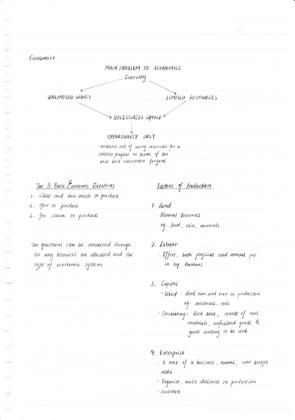 Economics
MAIN PROBLEM OF ECONOMICS
Scarcity
UNLIMITED WANTS
LIMITED RESOURCES
NECESSITATES CHOICE
OPPORTUNITY COST
cost of using resources for a
certain purpose in terms of the
next best alternative foregone
The 3 Basic Economic Questions
1. What and how much to produce
2. How to produce
3. For whom to produce
The questions can be answered through
the way resources are allocated and the
type of economic system
Factors of Production
1. Land
- Natural Resources
eg. land, rain, minerals
2. Labour
- Effort, both physical and mental put
in by humans
3. Capital
- Fixed: Used over and over in production
eg. machines, tools
- Circulating: Used once, consist of raw
materials, unfinished goods &
goods waiting to be sold
4. Enterprise
- A of a business, owner, who accept
risks
- Organise, make decisions in production
- Innovate